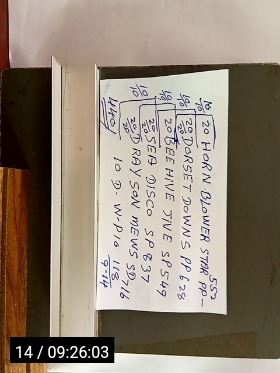 20 HORN BLOWER STAR PP-
557
20 DORSET DOWNS PP 628
20 BEE HIVE JIVE SP 549
20 SEA DISCO SP 837
20 DRAYSON MEWS SD 716
10 D. W-P10 118
9-14
14 / 09:26:03